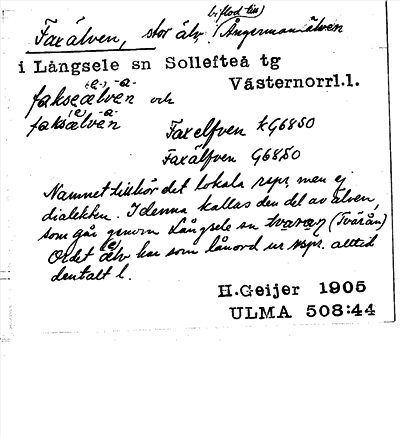 Faxälven, stor älv, (biflod till) Ångermanälven
i Långsele sn Sollefteå tg
Västernorrl.l.
fakseälven och
faksälven
Faxelfven kG6850
Faxälfven G6850
Namnet tillhör det lokala rspr. men ej
dialekten. I denna kallas den del av älven,
som går genom Långsele sn tværæn (Tvärån)
Ordet älv har som lånord ur rspr. alltid
dentalt l.
H.Geijer 1905
ULMA 508:44